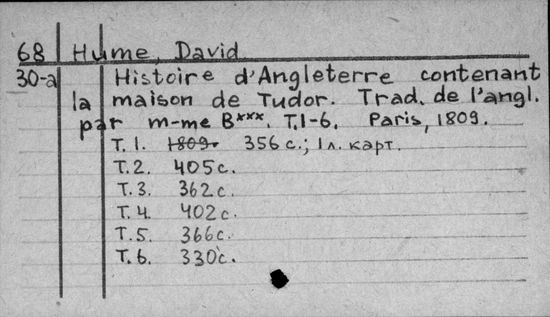 68 Hume, David
30-a Histoire d'Angleterre contenant
la maison de Tudor. Trad. de l'angl.
par m-me B***. T.1-6. Paris, 1809.
T. 1. 1809. 356 с.; 1 л. карт.
T. 2. 405 с.
T. 3. 362 с.
T. 4. 402 с.
T. 5. 366 с.
T. 6. 330 с.